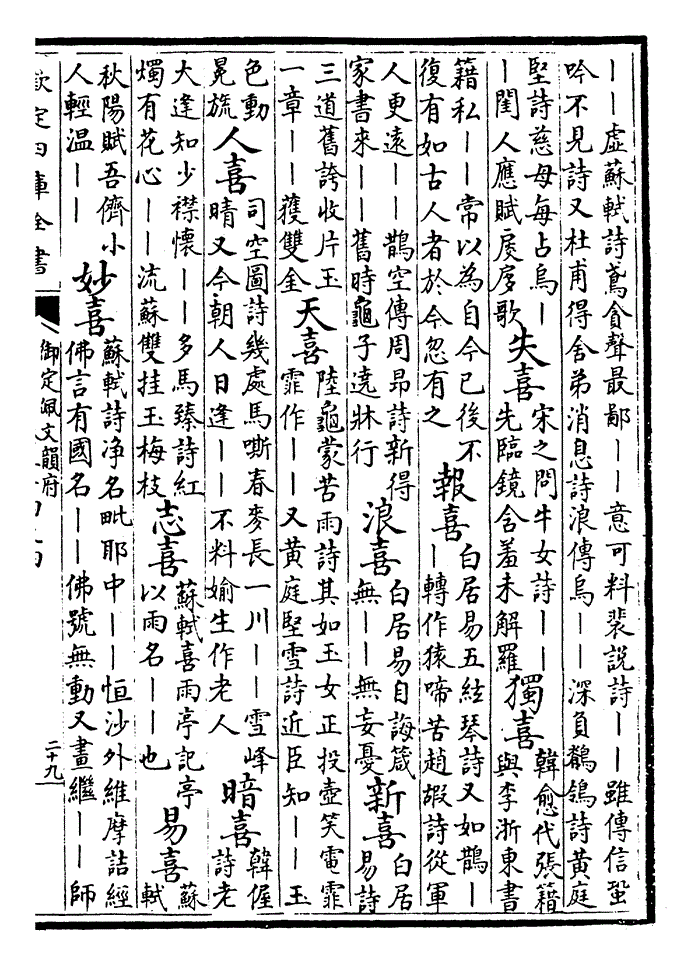 丨丨虛蘇軾詩鳶貪聲最鄙丨丨意可料裴說詩丨丨雖傳信蛩
吟不見詩又杜甫得舍弟消息詩浪傳烏丨丨深負鶺鴒詩黃庭
堅詩慈母每占烏丨
丨閨人應賦扊扅歌
失喜
宋之問牛女詩丨丨
先臨鏡含羞未解羅
獨喜
韓愈代張籍
與李浙東書
籍私丨丨常以為自今已後不
復有如古人者於今忽有之
報喜
白居易五絃琴詩又如鵲丨
丨轉作猿啼苦趙嘏詩從軍
人更遠丨丨鵲空傳周昂詩新得
家書來丨丨舊時龜子遶牀行
浪喜
白居易自誨箴
無丨丨無妄憂
新喜
白居
易詩
三道舊誇收片玉
一章丨丨獲雙金
天喜
陸龜蒙苦雨詩其如玉女正投壺笑電霏
霏作丨丨又黃庭堅雪詩近臣知丨丨玉
色動
晃旒
人喜
司空圖詩幾處馬嘶春麥長一川丨丨雪峰
晴又今朝人日逢丨丨不料媮生作老人
暗喜
韓偓
詩老
大逢知少襟懷丨丨多馬臻詩紅
燭有花心丨丨流蘇雙挂玉梅枝
志喜
蘇軾喜雨亭記亭
以雨名丨丨也
易喜
蘇
軾
秋陽賦吾儕小
人輕溫丨丨
妙喜
蘇軾詩净名毗耶中丨丨恒沙外維摩詰經
佛言有國名丨丨佛號無動又畫繼丨丨師
欽定四庫全書
御定佩文韻府
二十九